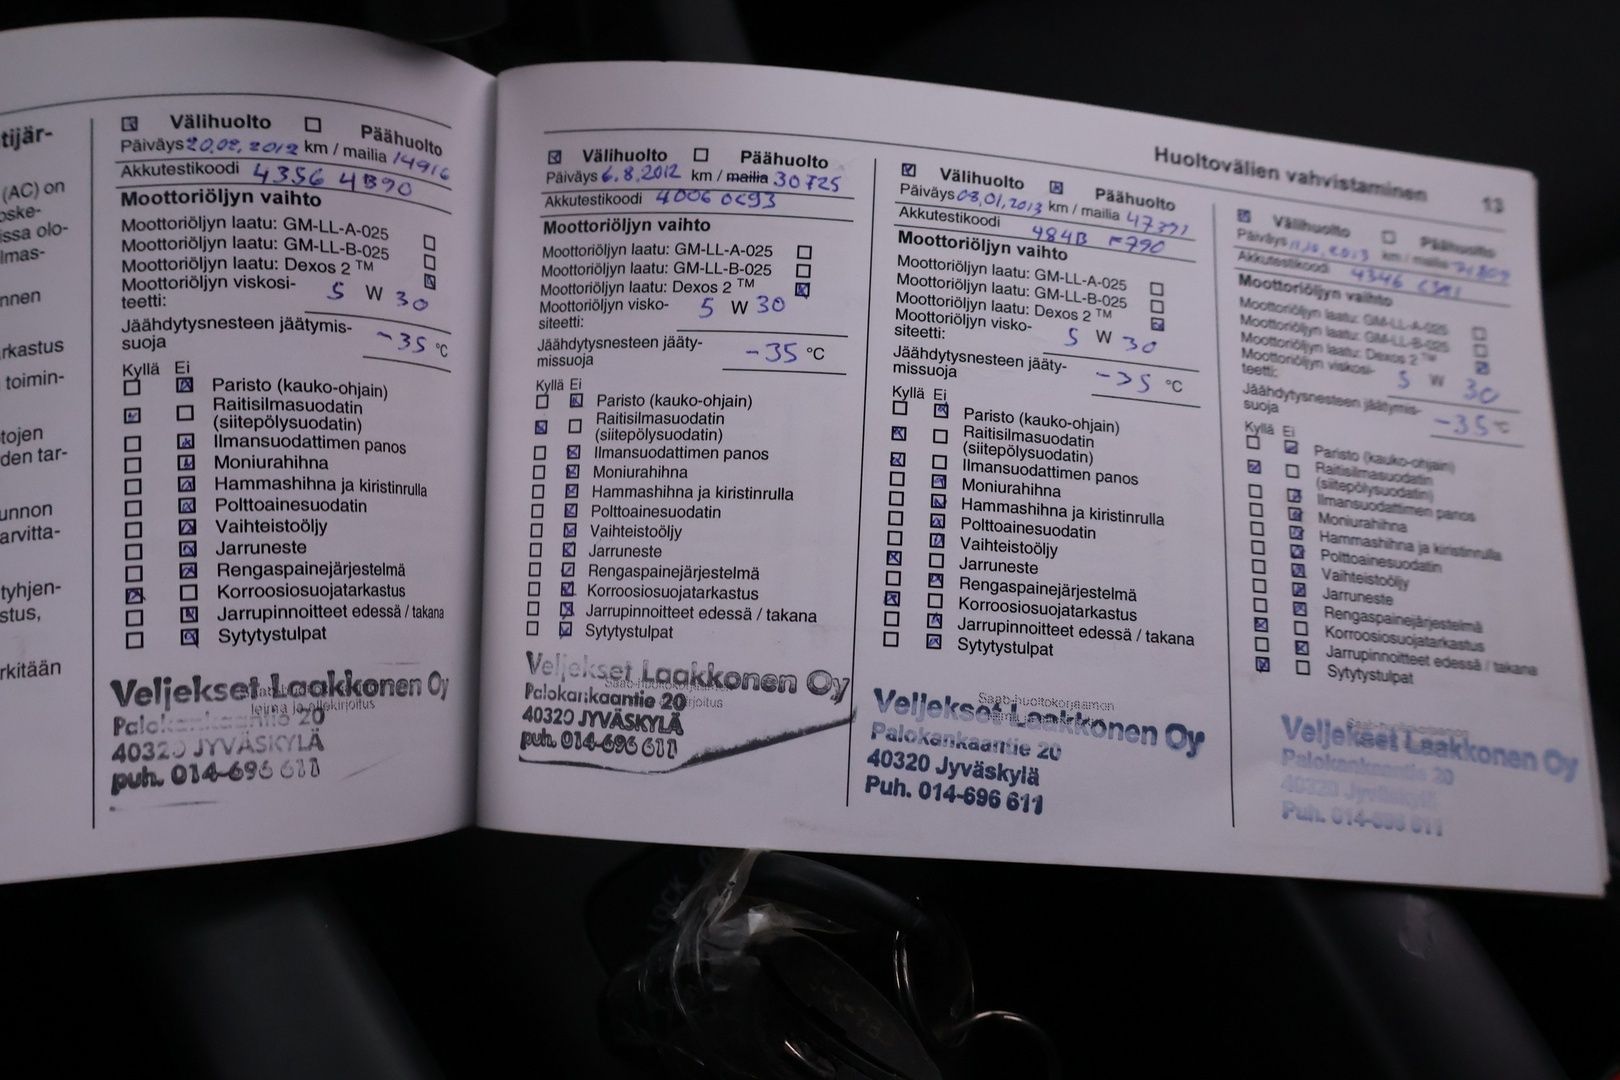 tijär-
(AC) on
oske-
issa olo-
lmas-
nnen
rkastus
toimin-
tojen
den tar-
unnon
arvitta-
tyhjen-
stus,
rkitään
Välihuolto Päähuolto
Päiväys 20.02.2012 km / mailia 14916
Akkutestikoodi 4356 4B90
Moottoriöljyn vaihto
Moottoriöljyn laatu: GM-LL-A-025
Moottoriöljyn laatu: GM-LL-B-025
Moottoriöljyn laatu: Dexos 2 ™
Moottoriöljyn viskosi-
teetti: 5 W 30
Jäähdytysnesteen jäätymis-
suoja -35 °C
Kyllä Ei
Paristo (kauko-ohjain)
Raitisilmasuodatin
(siitepölysuodatin)
Ilmansuodattimen panos
Moniurahihna
Hammashihna ja kiristinrulla
Polttoainesuodatin
Vaihteistoöljy
Jarruneste
Rengaspainejärjestelmä
Korroosiosuojatarkastus
Jarrupinnoitteet edessä / takana
Sytytystulpat
Veljekset Laakkonen Oy
leima ja allekirjoitus
Palokankaantie 20
40320 JYVÄSKYLÄ
puh. 014-696 611
Välihuolto Päähuolto
Päiväys 6.8.2012 km / mailia 30725
Akkutestikoodi 4006 0C93
Moottoriöljyn vaihto
Moottoriöljyn laatu: GM-LL-A-025
Moottoriöljyn laatu: GM-LL-B-025
Moottoriöljyn laatu: Dexos 2 ™
Moottoriöljyn visko-
siteetti: 5 W 30
Jäähdytysnesteen jääty-
missuoja -35 °C
Kyllä Ei
Paristo (kauko-ohjain)
Raitisilmasuodatin
(siitepölysuodatin)
Ilmansuodattimen panos
Moniurahihna
Hammashihna ja kiristinrulla
Polttoainesuodatin
Vaihteistoöljy
Jarruneste
Rengaspainejärjestelmä
Korroosiosuojatarkastus
Jarrupinnoitteet edessä / takana
Sytytystulpat
Veljekset Laakkonen Oy
Palokankaantie 20
40320 JYVÄSKYLÄ
puh. 014-696 611
Huoltovälien vahvistaminen 13
Välihuolto Päähuolto
Päiväys 08.01.2013 km / mailia 47391
Akkutestikoodi 484B F790
Moottoriöljyn vaihto
Moottoriöljyn laatu: GM-LL-A-025
Moottoriöljyn laatu: GM-LL-B-025
Moottoriöljyn laatu: Dexos 2 ™
Moottoriöljyn visko-
siteetti: 5 W 30
Jäähdytysnesteen jääty-
missuoja -35 °C
Kyllä Ei
Paristo (kauko-ohjain)
Raitisilmasuodatin
(siitepölysuodatin)
Ilmansuodattimen panos
Moniurahihna
Hammashihna ja kiristinrulla
Polttoainesuodatin
Vaihteistoöljy
Jarruneste
Rengaspainejärjestelmä
Korroosiosuojatarkastus
Jarrupinnoitteet edessä / takana
Sytytystulpat
Saab-huoltokorjaamon
Veljekset Laakkonen Oy
Palokankaantie 20
40320 Jyväskylä
Puh. 014-696 611
Välihuolto Päähuolto
Päiväys 11.10.2013 km / mailia
Akkutestikoodi 4346
Moottoriöljyn vaihto
Moottoriöljyn laatu: GM-LL-A-025
Moottoriöljyn laatu: GM-LL-B-025
Moottoriöljyn laatu: Dexos 2 ™
Moottoriöljyn viskosi-
teetti: 5 W 30
Jäähdytysnesteen jäätymis-
suoja -35 °C
Kyllä Ei
Paristo (kauko-ohjain)
Raitisilmasuodatin
(siitepölysuodatin)
Ilmansuodattimen panos
Moniurahihna
Hammashihna ja kiristinrulla
Polttoainesuodatin
Vaihteistoöljy
Jarruneste
Rengaspainejärjestelmä
Korroosiosuojatarkastus
Jarrupinnoitteet edessä / takana
Sytytystulpat
Veljekset Laakkonen Oy
Palokankaantie 20
40320 Jyväskylä
Puh. 014-696 611